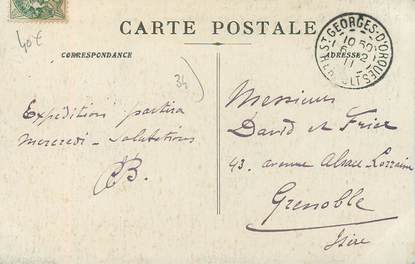 CARTE POSTALE
CORRESPONDANCE
ADRESSE
ST GEORGES-D'ORQUES
HERAULT
40€
34
Expédition partira
mercredi - Salutations
CB.
Messieurs
David et
43. avenue Alsace-Lorraine
Grenoble
Isère